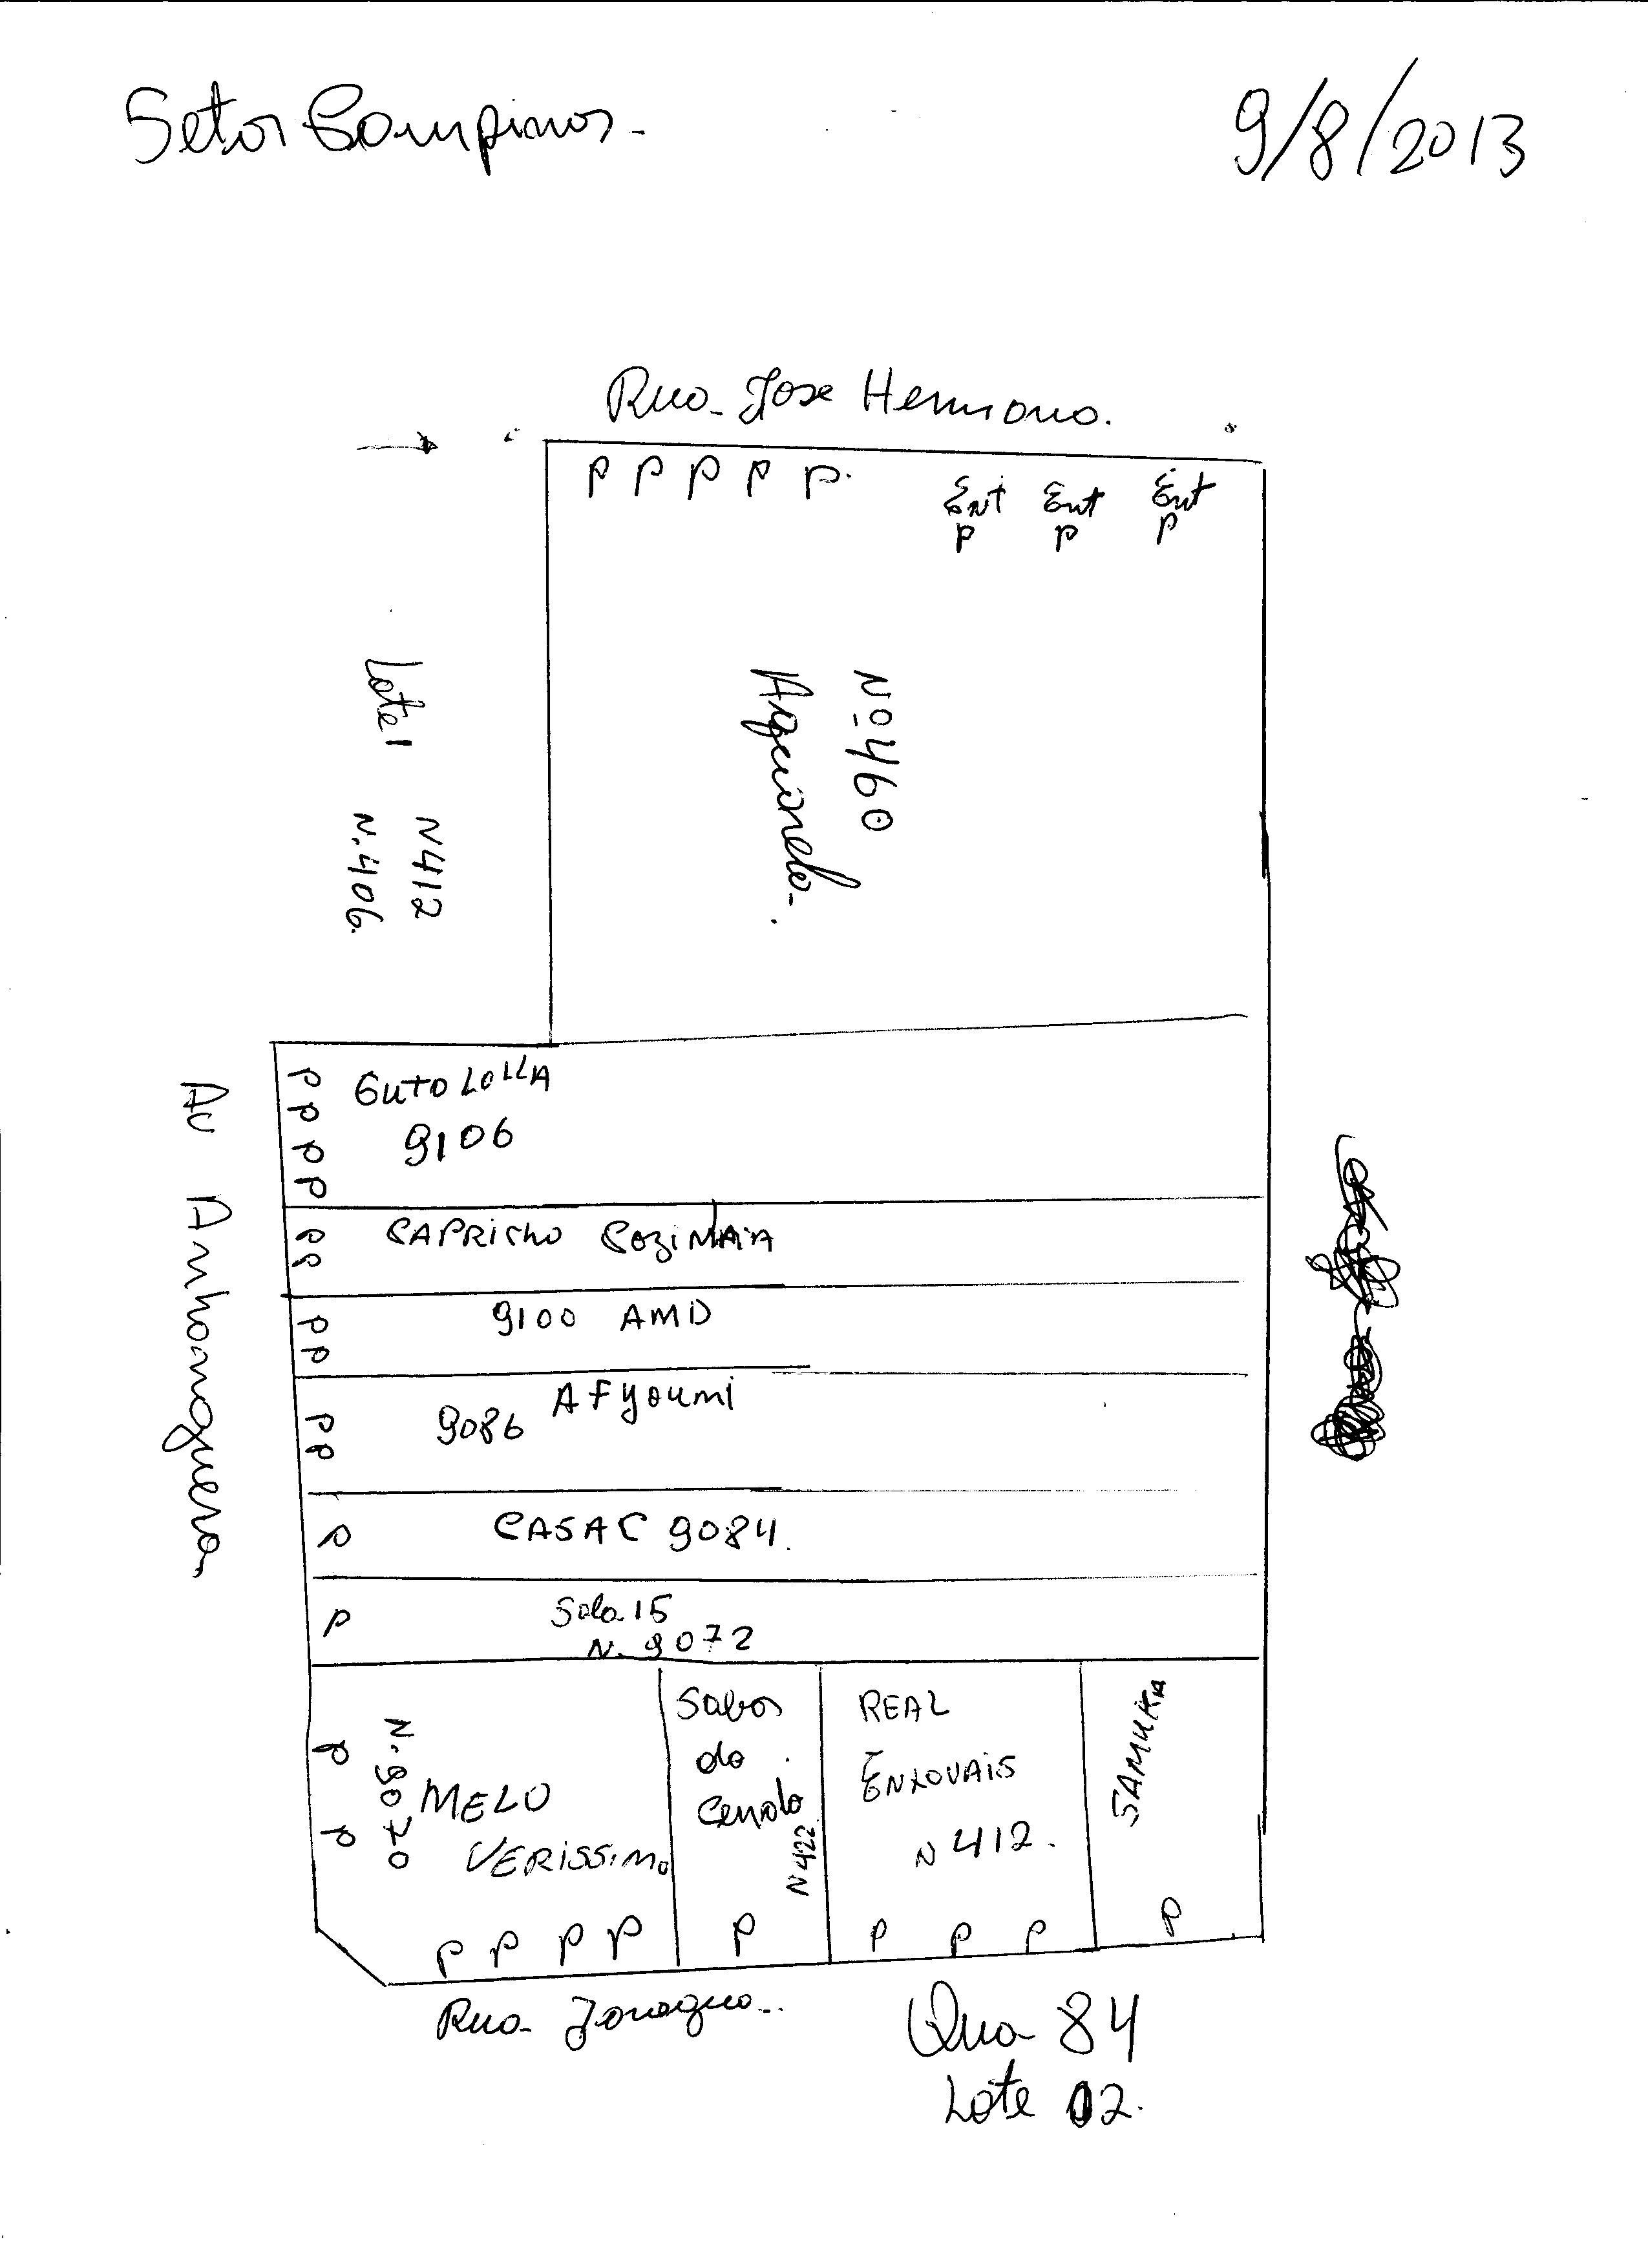 Setor Campinas.
9/8/2013
Rua Jose Hermano.
P P P P P.
Ent Ent Ent
P P P
Nº 460
Lote 1
N 412
N. 406.
Av Anhanguera
P P P P
GUTO LOLLA
9106
P P
CAPRICHO COZINHA
P P
9100 AMD
P P
AFYOUMI
9086
P
CASA C 9084.
P
Sala 15
N. 9072
P P
N. 9070
MELO
VERISSIMO
P P P P
Sabor
do
N 422
P
REAL
ENXOVAIS
N 412.
P P P
SAMUKA
P
Rua Jaragua..
Qua 84
Lote 02.